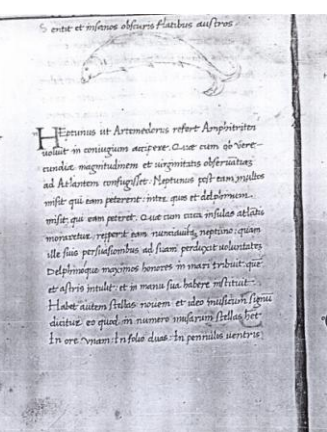 Sentit et insanos obscuris flatibus austros.
HEptunus ut Artemedorus refert Amphitriten
voluit in coniugium accipere. Quae cum ob vere
cundiae magnitudinem et virginitatis observatias
ad Atlantem confugisset. Neptunus post eam multos
misit qui eam peterent: inter quos et delphinem
misit: qui eam peteret. Quae cum circa insulas atlatis
moraretur, reperit eam nunciavitque neptuno: quam
ille suis persuasionibus ad suam perduxit voluntatem
Delphinoque maximos honores in mari tribuit. que
et astris intulit: et in manu sua habere instituit.
Habet autem stellas novem et ideo musicum signu
dicitur eo quod in numero musarum stellas het
In ore unam: In folio duas: In pennulis ventris